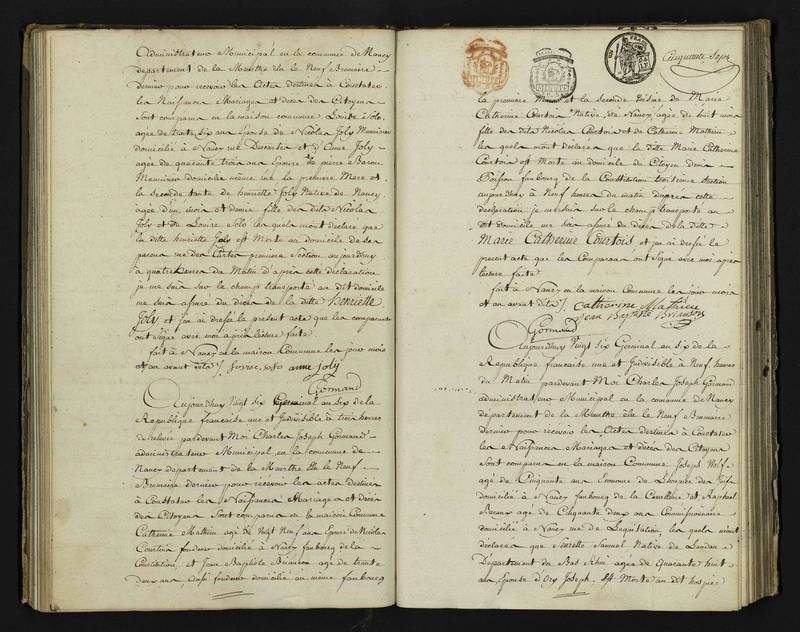 Administrateur Municipal en la commune de Nancy
departement de la Meurthe élu le Neuf Brumaire
dernier pour recevoir les Actes destinés à Constater
les Naissances Mariages et décès des Citoyens
Sont comparus en la maison commune Louise Solo
agée de trente six ans Epouse de Nicolas Joly Menuisier
domicilié à Nancy rue et d'Anne Joly
agée de quarante trois ans Epouse de pierre
Menuisier domicilié même rue la premiere Mere et
la seconde tante de henriette Joly Native de Nancy
agée d'un mois et demie fille des dits Nicolas
Joly et de Louise Solo les quels mont declaré que
la ditte henriette Joly est Morte au domicile de ses
parens rue des premiere Section aujourdhuy
à quatre heures du Matin d'après cette déclaration
je me suis sur le champ transporté au dit domicile
me suis assuré du décès de la ditte Henriette
Joly, et j'en ai dressé le present acte que les comparants
ont signé avec moi après lecture faite
fait à Nancy en la maison Commune les jour mois
et an avant dits / anne joly
Gormand
Aujourdhuy Vingt six Germinal an six de la
Republique française une et Indivisible à trois heures
de relevée pardevant Moi Charles Joseph Gormand
administrateur Municipal en la commune de
Nancy departement de la Meurthe élu le Neuf
Brumaire dernier pour recevoir les actes destinés
à Constater les Naissances Mariages et décès
des Citoyens Sont comparus en la maison Commune
Catherine Mathieu agée de Vingt Neuf ans Epouse de Nicolas
Courtois fondeur domicilié à Nancy faubourg de la
Constitution, et Jean Baptiste agé de trente
deux ans, aussi fondeur domicilié au même faubourg
Cinquante Sept
la premiere Mere et la seconde Voisine de Marie
Catherine Courtois Native de Nancy, agée de huit mois
fille des dits Nicolas Courtois et de Catherine Mathieu
les quels mont déclaré que la ditte Marie Catherine
Courtois est Morte au domicile du Citoyen
faubourg de la Constitution troisieme Section
aujourdhuy à Neuf heures du matin d'après cette
déclaration je me suis sur le champ transporté au
dit domicile me suis assuré du décès de la ditte
Marie Catherine Courtois et j'en ai dressé le
present acte que les Comparans ont signé avec moi après
lecture faite
fait à Nancy en la maison Commune les jour mois
et an avant dits / Catherine Mathieu
Jean Baptiste
Gormand
Aujourdhuy Vingt six Germinal an six de la
Republique française une et Indivisible à Neuf heures
du Matin pardevant Moi Charles Joseph Gormand
administrateur Municipal en la commune de Nancy
departement de la Meurthe élu le Neuf Brumaire
dernier pour recevoir les Actes destinés à Constater
les Naissances Mariages et décès des Citoyens
Sont comparus en la maison Commune Joseph Wolf
agé de Cinquante ans Econome de L'hospice des Juifs
domicilié à Nancy faubourg de la et Raphael
agé de Cinquante deux ans Commissionaire
domicilié à Nancy rue de Lequitation, les quels mont
déclaré que Samuel Native de Landau
Departement du Bas Rhin agée de Quarante huit
ans Epouse d' Joseph, est Morte au dit hospice